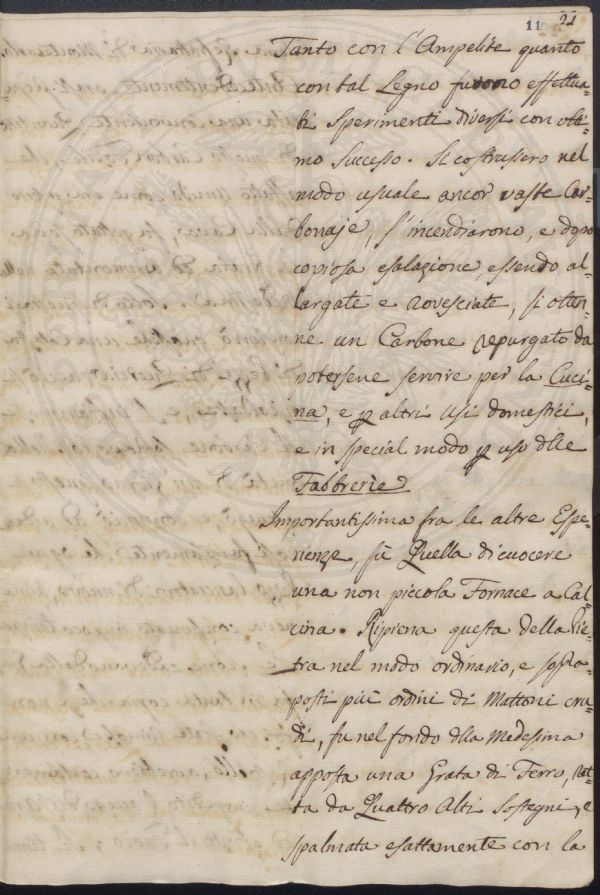 11 21
Tanto con l'Ampelite quanto
con tal Legno furono effettua=
ti Sperimenti diversi con otti=
mo successo. Si costrussero nel
modo usuale ancor vaste Car=
bonaje, s'incendiarono, e dopo
copiosa esalazione, essendo al=
largate e rovesciate, si otten=
ne un Carbone repurgato da
potersene servire per la Cuci=
na, e p altri usi domestici,
e in special modo p uso dlle
Fabbrerìe
Importantissima fra le altre Espe=
rienze, fù Quella di cuocere
una non piccola Fornace a Cal=
cina. Ripiena questa della Pie=
tra nel modo ordinario, e soppra=
posti più ordini di Mattoni cru=
di, fu nel fondo dlla Medesima
apposta una Grata di Ferro,
ta da Quattro Alti Sostegni, e
spalmata esattamente con la